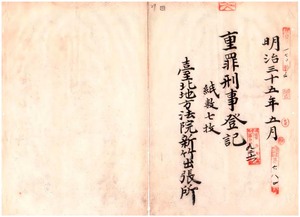 明治三十五年五月
重罪刑事登記
紙數七枚
臺北地方法院新竹出張所